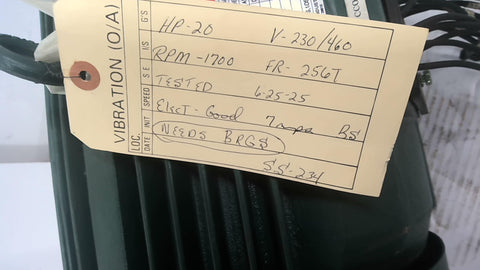 HP-20 V-230/460
RPM-1700 FR-256T
TESTED 6-25-25
Elect-Good 7 amps BS
NEEDS BRGS
SS-234
VIBRATION (O/A)
LOC.
DATE INIT SPEED S E I/S G'S